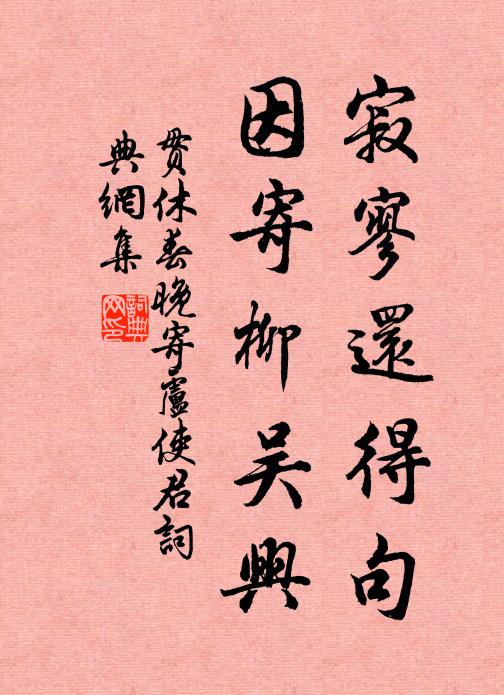 寂寥還得句
因寄柳吴興
貫休春晚寄盧使君詞
典網集
詞典網印